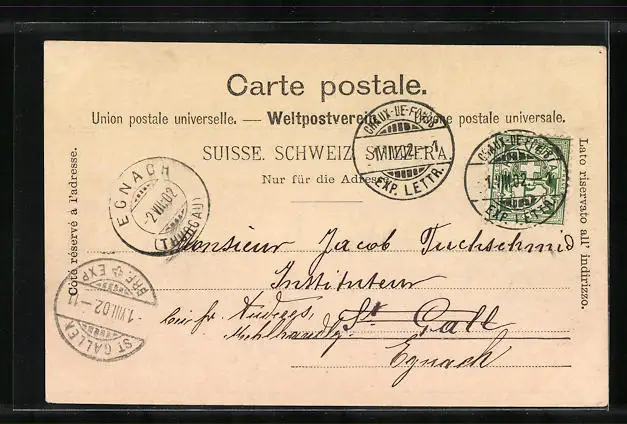 Carte postale.
Union postale universelle. — Weltpostverein. — Unione postale universale.
SUISSE. SCHWEIZ. SVIZZERA.
Nur für die Adresse.
Côté réservé à l'adresse.
Lato riservato all' indirizzo.
CHAUX-DE-FONDS
EXP. LETTR.
CHAUX-DE-FONDS
EXP. LETTR.
EGNACH
-2.VIII.02
(THURGAU)
ST GALLEN
1.VIII.02
BRF. EXP.
Monsieur Jacob Tuchschmid
Instituteur
St Gall
Mehlhandlg.
Egnach